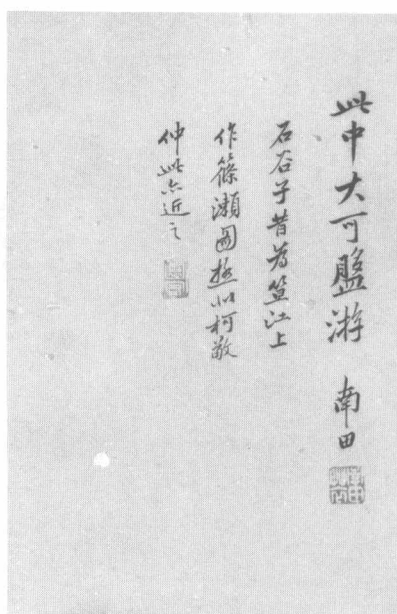 此中大可盤游 南田
石谷子昔為笪江上
作篠瀬圖極似柯敬
仲此亦近之